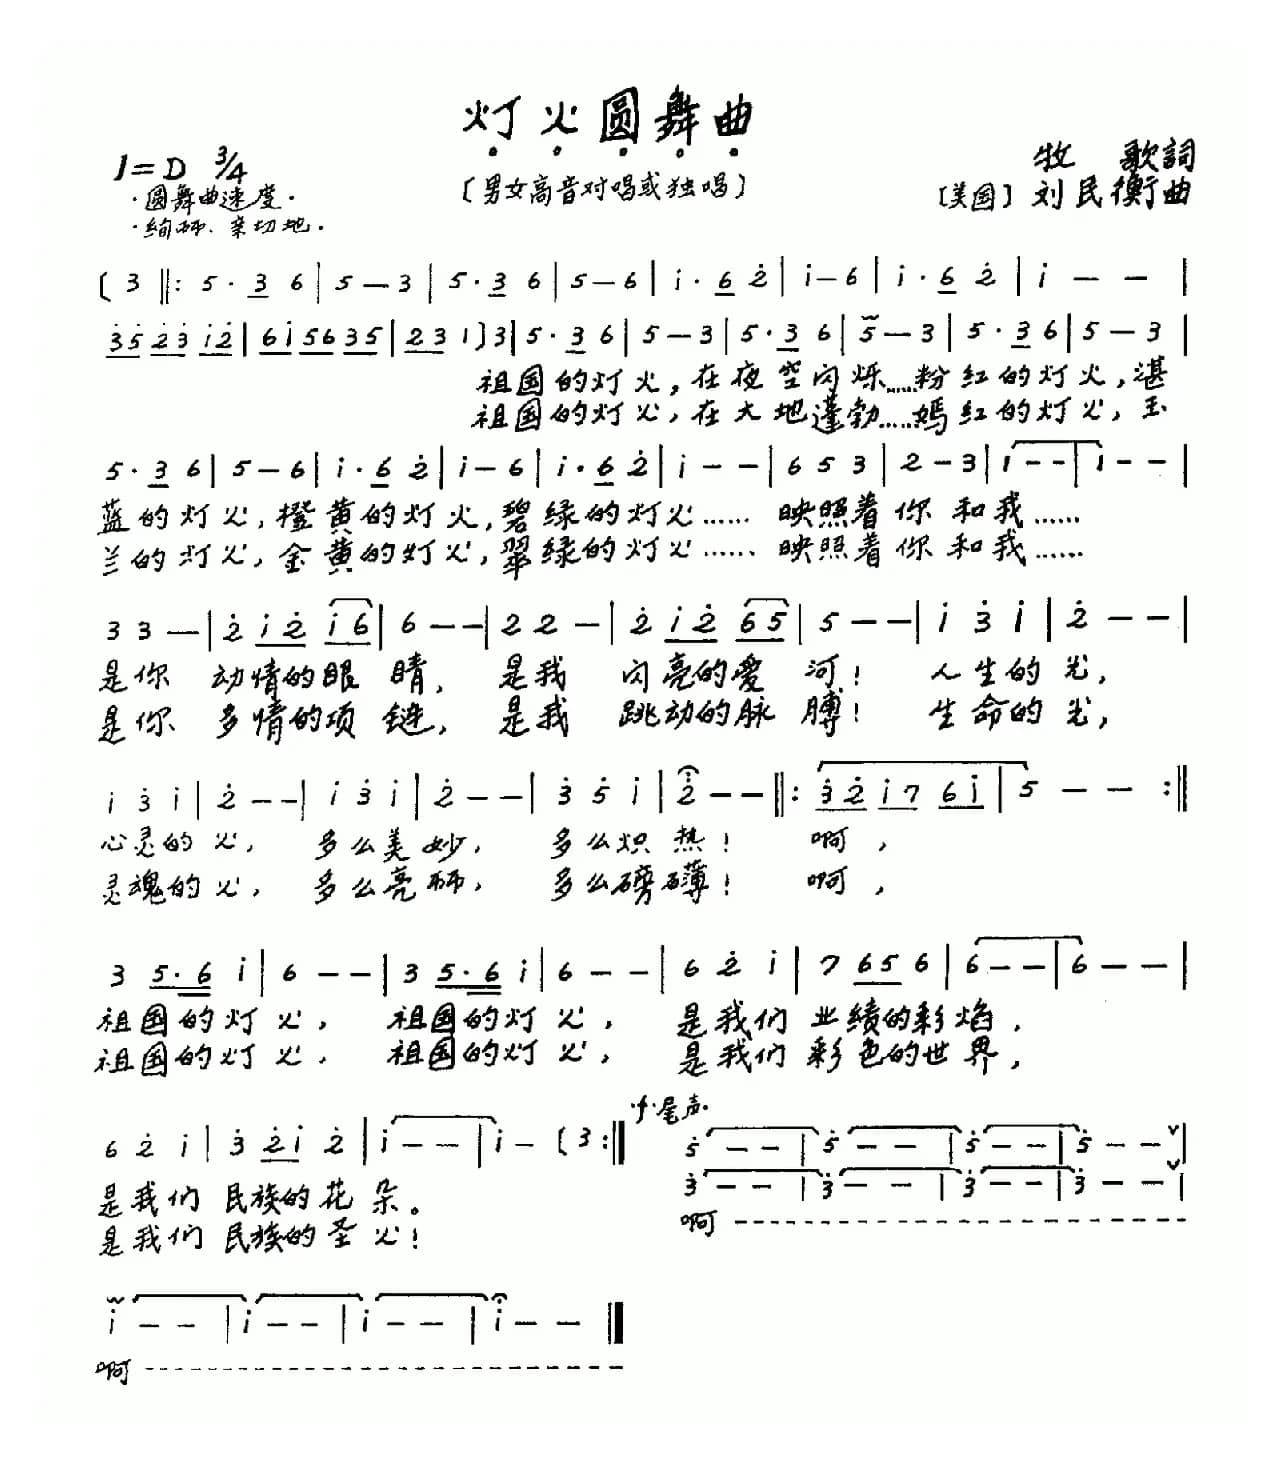 灯火圆舞曲
1=D 3/4
牧 歌詞
·圆舞曲速度·
〔男女高音对唱或独唱〕
［美国］刘民衡曲
·绚丽、亲切地·
( 3 ‖: 5 · 3 6 | 5 — 3 | 5 · 3 6 | 5 — 6 | i · 6 2 | i — 6 | i · 6 2 | i — — |
35 23 i2 | 6i 56 35 | 23 1 ) 3 | 5 · 3 6 | 5 — 3 | 5 · 3 6 | 5 — 3 | 5 · 3 6 | 5 — 3 |
祖国的灯火,在夜空闪烁……粉红的灯火,湛
祖国的灯火,在大地蓬勃……嫣红的灯火,玉
5 · 3 6 | 5 — 6 | i · 6 2 | i — 6 | i · 6 2 | i — — | 6 5 3 | 2 — 3 | 1 — — | 1 — — |
蓝的灯火,橙黄的灯火,碧绿的灯火…… 映照着你和我……
兰的灯火,金黄的灯火,翠绿的灯火…… 映照着你和我……
3 3 — | 2 i2 i6 | 6 — — | 2 2 — | 2 i2 65 | 5 — — | i 3 i | 2 — — |
是你 动情的眼睛, 是我 闪亮的爱河! 人生的光,
是你 多情的项链, 是我 跳动的脉膊! 生命的光,
i 3 i | 2 — — | i 3 i | 2 — — | 3 5 i | 2 — — ‖: 32 i7 6i | 5 — — :‖
心灵的火, 多么美妙, 多么炽热! 啊,
灵魂的火, 多么亮丽, 多么磅礴! 啊,
3 5·6 i | 6 — — | 3 5·6 i | 6 — — | 6 2 i | 7 65 6 | 6 — — | 6 — — |
祖国的灯火, 祖国的灯火, 是我们业绩的彩焰,
祖国的灯火, 祖国的灯火, 是我们彩色的世界,
·f·尾声·
6 2 i | 3 2i 2 | i — — | i — ( 3 :‖ 5 — — | 5 — — | 5 — — | 5 — — |
3 — — | 3 — — | 3 — — | 3 — — |
是我们民族的花朵。
啊 ------------
是我们民族的圣火!
i — — | i — — | i — — | i — — ‖
啊 ------------